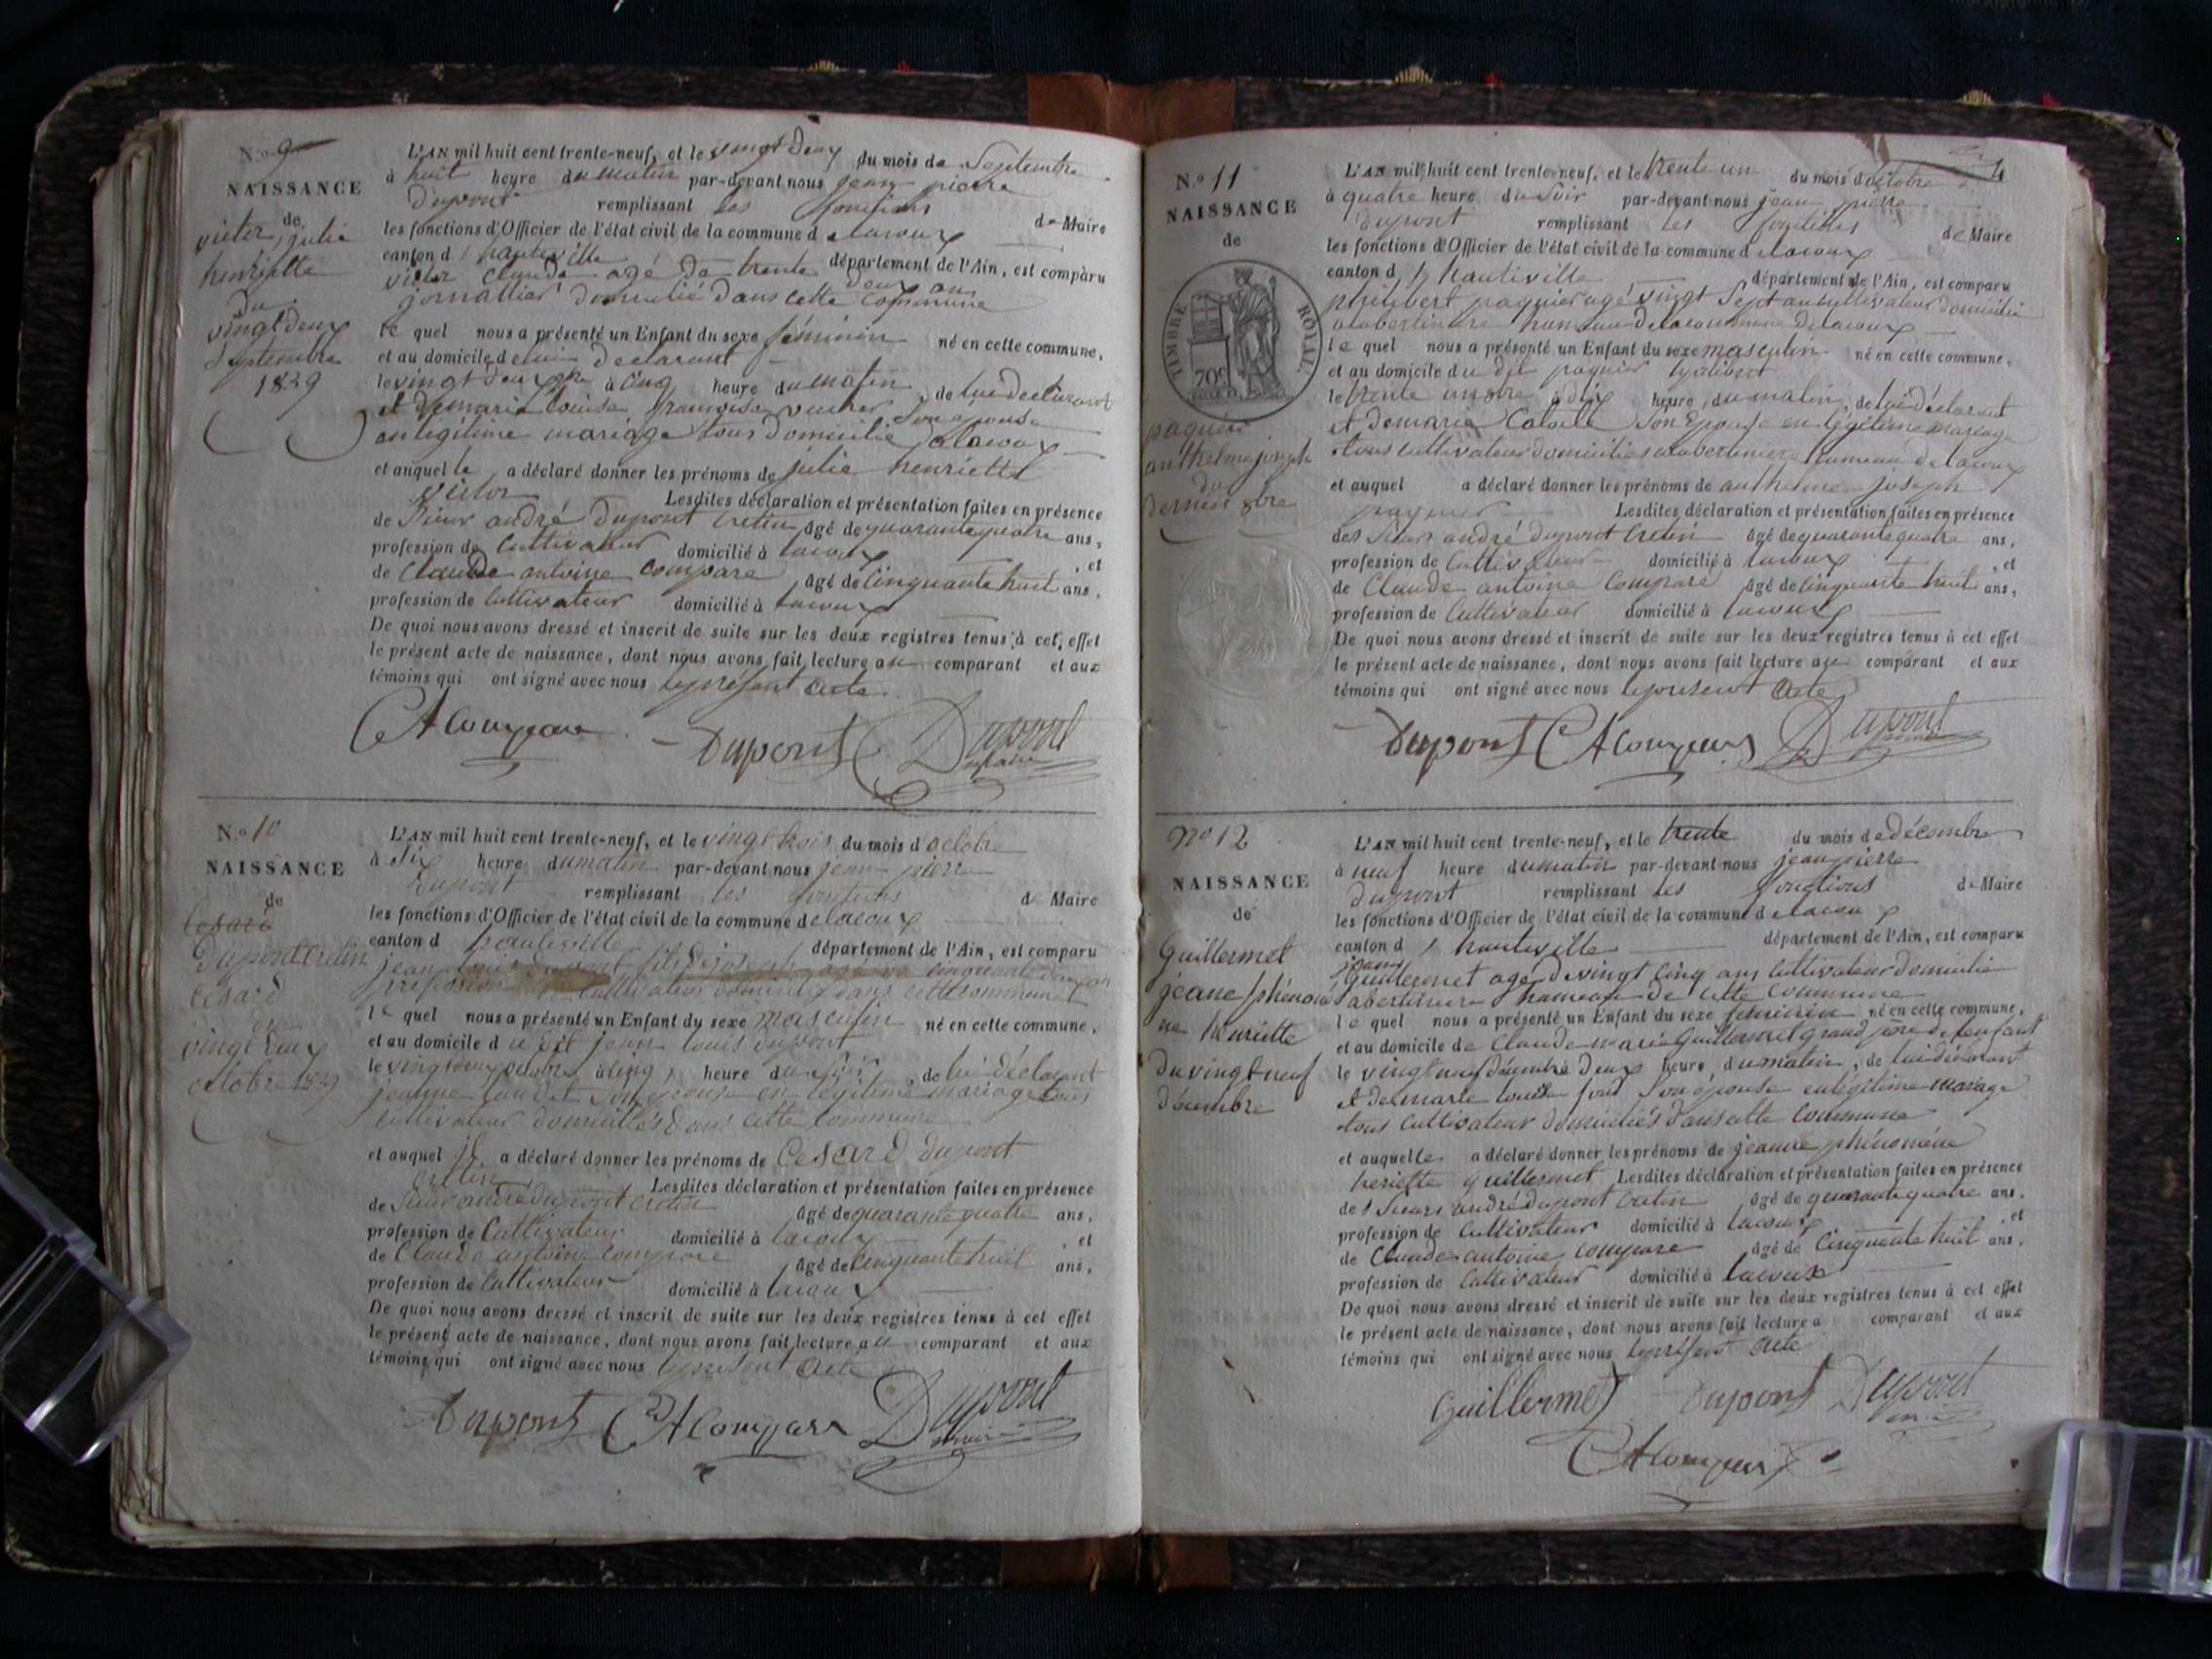 N.º 9
NAISSANCE
de
victor, julie
henriette
du
vingt deux
Septembre
1839
L'AN mil huit cent trente-neuf, et le vingt deux du mois de Septembre
à huit heure du matin par-devant nous jean pierre
Dupont remplissant les fonctions de Maire
les fonctions d'Officier de l'état civil de la commune de lacoux
canton d'hauteville département de l'Ain, est comparu
victor Claude agé de trente deux ans
jornallier domicilié dans cette Commune
le quel nous a présenté un Enfant du sexe féminin né en cette commune,
et au domicile de lui Declarant
le vingt deux 7bre à cinq heure du matin, de lui declarant
et de marie louise françoise Son épouse
en légitime mariage tous domicilié a lacoux
et auquel le a déclaré donner les prénoms de julie henriette
victor Lesdites déclaration et présentation faites en présence
de Sieur andré Dupont Cretin âgé de quarante quatre ans,
profession de Cultivateur domicilié à lacoux, et
de Claude antoine Compare âgé de Cinquante huit ans,
profession de Cultivateur domicilié à lacoux
De quoi nous avons dressé et inscrit de suite sur les deux registres tenus à cet effet
le présent acte de naissance, dont nous avons fait lecture au comparant et aux
témoins qui ont signé avec nous le présent acte
Dupont Dupont
maire
N.º 10
NAISSANCE
de
Cesard
Dupont Cretin
Cesard
du
vingt deux
octobre 1839
L'AN mil huit cent trente-neuf, et le vingt trois du mois d'octobre
à Six heure du matin par-devant nous jean pierre
Dupont remplissant les fonctions de Maire
les fonctions d'Officier de l'état civil de la commune de lacoux
canton d hauteville département de l'Ain, est comparu
jean louis Dupont fils de joseph agé de cinquante
profession de Cultivateur domicilié dans cette commune
le quel nous a présenté un Enfant du sexe masculin né en cette commune,
et au domicile du dit jean louis dupont
le vingt deux octobre à cinq heure du soir, de lui déclarant
jeanne Son epouse en legitime mariage tous
cultivateur domicilliés dans cette commune
et auquel il a déclaré donner les prénoms de Cesard dupont
cretin Lesdites déclaration et présentation faites en présence
de Sieur andré dupont cretin âgé de quarante quatre ans,
profession de Cultivateur domicilié à lacoux, et
de Claude antoine compare âgé de cinquante huit ans,
profession de Cultivateur domicilié à lacoux
De quoi nous avons dressé et inscrit de suite sur les deux registres tenus à cet effet
le présent acte de naissance, dont nous avons fait lecture au comparant et aux
témoins qui ont signé avec nous le présent acte
Dupont Dupont
maire
N.º 11
NAISSANCE
de
TIMBRE ROYAL
70c
paquier
anthelme joseph
du
dernier 8bre
L'AN mil huit cent trente-neuf, et le trente un du mois d'octobre
à quatre heure du Soir par-devant nous jean pierre
dupont remplissant les fonctions de Maire
les fonctions d'Officier de l'état civil de la commune de lacoux
canton d'hauteville département de l'Ain, est comparu
philibert paquier agé vingt Sept an cultivateur domicilié
hameau de la commune De lacoux
le quel nous a présenté un Enfant du sexe masculin né en cette commune,
et au domicile du dit paquier
le trente un 8bre à dix heure du matin, de lui déclarant
et de marie Son Epouse en légitime mariage
tous cultivateur domiciliés hameau de lacoux
et auquel a déclaré donner les prénoms de anthelme joseph
paquier Lesdites déclaration et présentation faites en présence
des Sieur andré dupont Cretin âgé de quarante quatre ans,
profession de Cultivateur domicilié à lacoux, et
de Claude antoine Compare âgé de Cinquante huit ans,
profession de Cultivateur domicilié à lacoux
De quoi nous avons dressé et inscrit de suite sur les deux registres tenus à cet effet
le présent acte de naissance, dont nous avons fait lecture au comparant et aux
témoins qui ont signé avec nous le présent acte
Dupont Dupont
Nº 12
NAISSANCE
de
Guillermet
jeane phénomé
ne henriette
du vingt neuf
décembre
L'AN mil huit cent trente-neuf, et le trente du mois de décembre
à neuf heure du matin par-devant nous jean pierre
dupont remplissant les fonctions de Maire
les fonctions d'Officier de l'état civil de la commune de lacoux
canton d'hauteville département de l'Ain, est comparu
Guillermet agé de vingt Cinq ans Cultivateur domicilié
hameau de cette Commune
le quel nous a présenté un Enfant du sexe féminin né en cette commune,
et au domicile de Claude marie Guillermet grand père de l'enfant
le vingt neuf décembre à Deux heure du matin, de lui déclarant
et de marie louise Son épouse en légitime mariage
tous Cultivateur domiciliés dans cette Commune
et auquelle a déclaré donner les prénoms de jeanne phénomène
heriette guillermet Lesdites déclaration et présentation faites en présence
des Sieurs andré dupont Cretin âgé de quarante quatre ans,
profession de Cultivateur domicilié à lacoux, et
de Claude antoine Compare âgé de Cinquante huit ans,
profession de Cultivateur domicilié à lacoux
De quoi nous avons dressé et inscrit de suite sur les deux registres tenus à cet effet
le présent acte de naissance, dont nous avons fait lecture a comparant et aux
témoins qui ont signé avec nous le présent acte
Guillermet Dupont Dupont